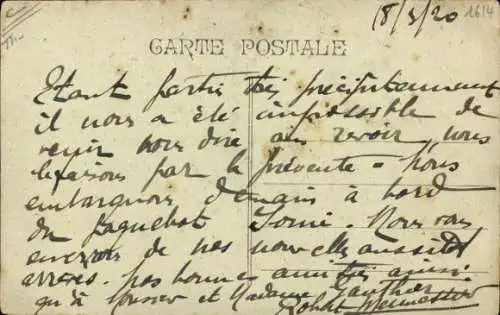 18/3/20
1614
CARTE POSTALE
Etant partis très précipitamment
il nous a été impossible de
venir vous dire au revoir, nous
le faisons par la présente - Nous
embarquons demain à bord
du paquebot Vous
enverrons de nos nouvelles aussitôt
arrivés. nos bonnes amitiés ainsi
qu'à et Madame Gauthier
Robert